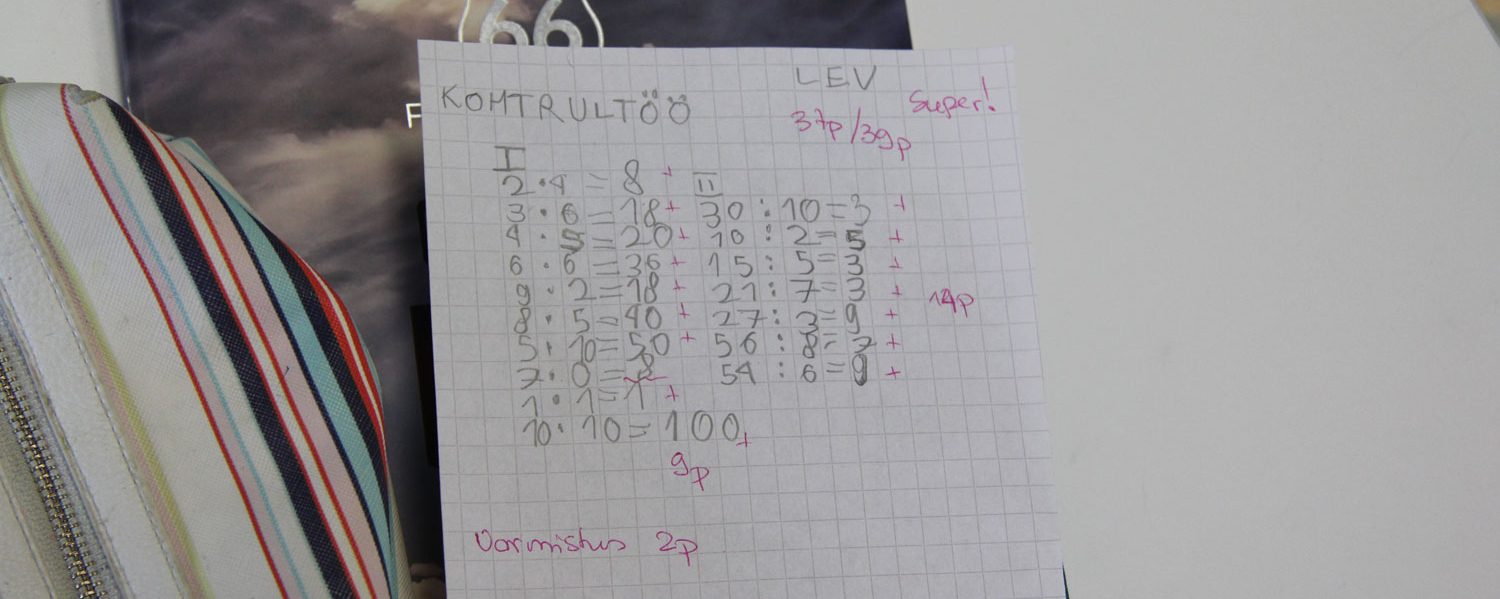 66
F
LEV
KOMTRULTÖÖ
Super!
37p/39p
I
2·4 = 8 +
3·6 = 18 +
4·5 = 20 +
6·6 = 36 +
9·2 = 18 +
8·5 = 40 +
5·10 = 50 +
7·0 = 8
1·1 = 1 +
10·10 = 100 +
9p
II
30:10=3 +
10:2=5 +
15:5=3 +
21:7=3 +
27:3=9 +
56:8=7 +
54:6=9 +
14p
Vormistus 2p